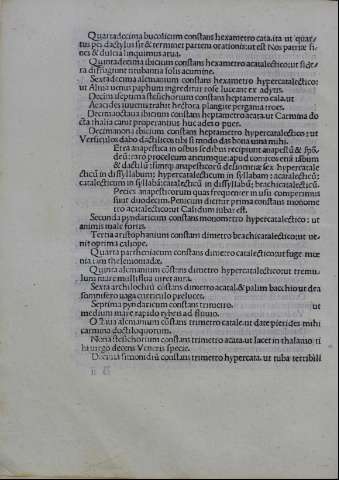 Quartadecima bucolicum constans hexametro cata.ita ut quar
tus pes dactylus sit & terminet partem orationis:ut est Nos patriæ fi
nes & dulcia linquimus arua.
Quintadecima ibicium constans hexametro acatalectico:ut
ra diffugiunt
Sextadecima alcmanium constans hexametro hypercatalectico:
ut Alma uenus paphum ingreditur rose lucent ex adytis.
Decimaseptima stesichorum constans heptametro cata.ut
Aeacides iuuenis trahit hectora plangite pergama troes.
Decimaoctaua ibicium constans heptametro acata.ut Carmina do
cta thalia canit properantius huc adeto puer.
Decimanona ibicium constans heptametro hypercatalectico:ut
Versiculos dabo dactilicos tibi si modo das bona uina mihi.
Et ex anapestica in orbis sedibus recipiunt anapestu &
deu:raro proceleumaticumque:apud comicos
& dactilu: anapesticorum sex hypercatale
cticu in dissyllabum; hypercatalecticum in syllabam: acatalecticu:
catalecticum in syllaba:catalecticu in dissyllabu: brachicatalecticu.
Pedes anapesticorum quas frequenter in usu comperimus
sunt duodecim. dicitur prima constans monome
tro acatalectico:ut Calidum iubar est.
Secunda pyndaricum constans monometro hypercatalectico: ut
animis male fortes.
Tertia aristophanium constans dimetro brachicatalectico:ut ue
nit optima caliope.
Quarta partheniacum constans dimetro catalectico:ut fuge mœ
nia
Quinta alcmanium costans dimetro hypercatalectico:ut tremu
lum mare mollitia uires aura.
Sexta archilochiu costans dimetro acatal.& palim bacchio:ut dea
somnifero uaga curriculo prelucet.
Septima pyndaricum constans trimetro. ut
medium mare rapido
Octaua alcmanium costans trimetro catale.ut date pierides mihi
carmina doctiloquorum.
Nona stesichorum constans trimetro acata.ut Iacet in thalamo ti
bi uirgo decens Veneris specie.
Decima simonidiu constans trimetro hypercata. ut tuba terribili